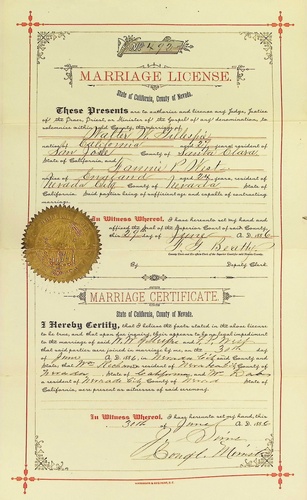 No. 492
MARRIAGE LICENSE.
State of California, County of Nevada.
These Presents are to authorize and license any Judge, Justice
of the Peace, Priest, or Minister of the Gospel of any denomination, to
solemnize within said County, the marriage of
Walter
native of California aged 27 years, resident of
San Jose County of Santa Clara
State of California and Fannie P. West
native of England aged 24 years, resident of
Nevada City County of Nevada State of
California. Said parties being of sufficient age and capable of contracting
marriage.
In Witness Whereof, I have hereunto set my hand and
affixed the Seal of the Superior Court of said County
this 29th day of June A. D. 1886
Deputy Clerk.
MARRIAGE CERTIFICATE.
State of California, County of Nevada.
I Hereby Certify, that I believe the facts stated in the above license
to be true, and that upon due inquiry, there appears to be no legal impediment
to the marriage of said and West
that said parties were joined in marriage by me, on the 30th day
of June A. D. 1886, in Nevada City said County and
State; that Wm a resident of Nevada City County of
Nevada State of California, and
a resident of Nevada City County of Nevada State of
California, were present as witnesses of said ceremony.
In Witness Whereof, I have hereunto set my hand, this
30th day of June A. D. 1886